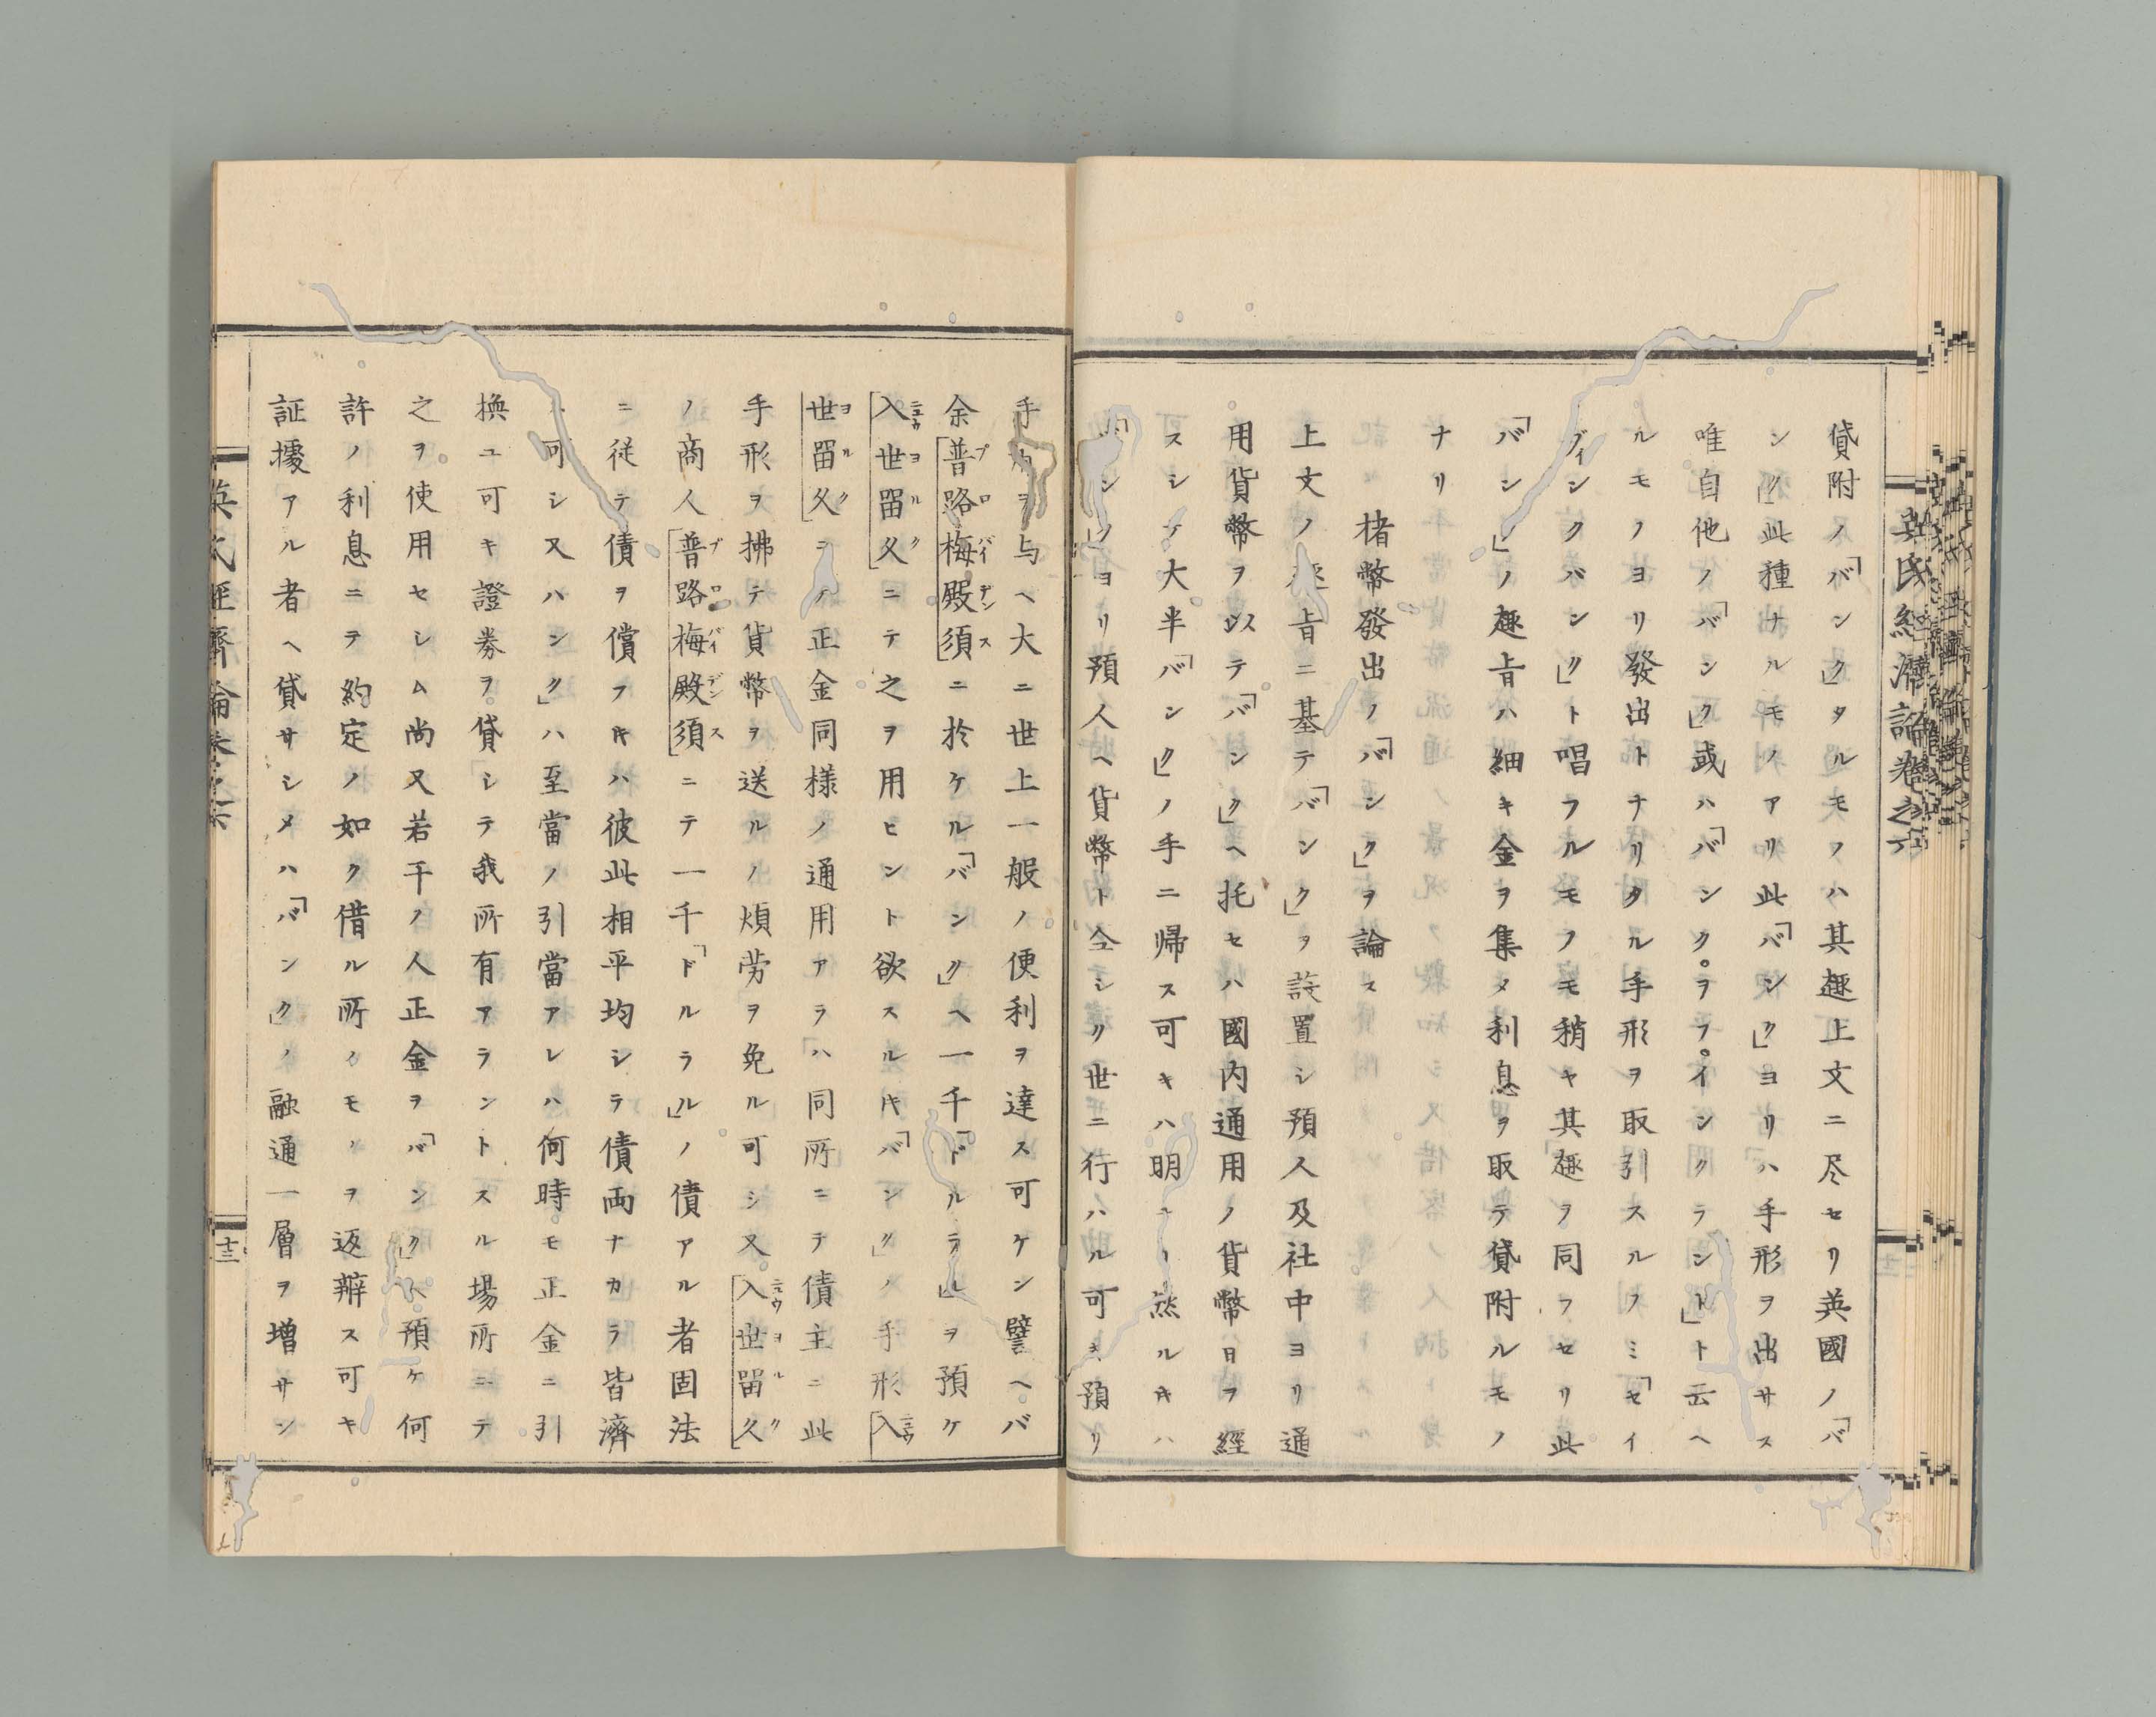 英氏經濟論卷之六
貸附ノ「バンク」タルモノハ其趣上文ニ尽セリ英國ノ「バ
ンク」此種ナルモノアリ此「バンク」ヨリハ手形ヲ出サス
唯自他ノ「バンク」或ハ「バンク。ヲフ。インクランド」ト云ヘ
ルモノヨリ發出トナリタル手形ヲ取引スルフミ「セイ
ヴィンクバンク」ト唱フルモノモ稍ヤ其趣ヲ同フセリ此
「バンク」ノ趣旨ハ細キ金ヲ集メ利息ヲ取テ貸附ルモノ
ナリ
楮幣發出ノ「バンク」ヲ論ス
上文ノ 旨ニ基テ「バンク」ヲ設置シ預人及社中ヨリ通
用貨幣ヲ以テ「バンク」ヘ托セハ國内通用ノ貨幣日ヲ經
スシテ大半「バンク」ノ手ニ帰ス可キハ明 然ルキハ
「バンク」ヨリ預人ヘ貨幣ト全シク世ニ行ハル可キ預リ
手 ヲ与ヘ大ニ世上一般ノ便利ヲ達ス可ケン譬ヘバ
余普路梅殿須ニ於ケル「バンク」ヘ一千「ドルラル」ヲ預ケ
入世留久ニテ之ヲ用ヒント欲スルキ「バンク」ノ手形入
世留久ニテ正金同様ノ通用アラハ同所ニテ債主ニ此
手形ヲ拂テ貨幣ヲ送ルノ煩労ヲ免ル可シ又入世留久
ノ商人普路梅殿須ニテ一千「ドルラル」ノ債アル者固法
ニ従テ債ヲ償フキハ彼此相平均シテ債両ナカラ皆濟
ス可シ又ハンク」ハ至當ノ引當アレハ何時モ正金ニ引
換ユ可キ證券ヲ貸シテ我所有アラントスル場所ニテ
之ヲ使用セシム尚又若干ノ人正金ヲ「バンク」ヘ預ケ何
許ノ利息ニヲ約定ノ如ク借ル所ノモノヲ返辨ス可キ
証㩀アル者ヘ貸サシメハ「バンク」ノ融通一層ヲ増サン
英氏經濟論卷之六
十三